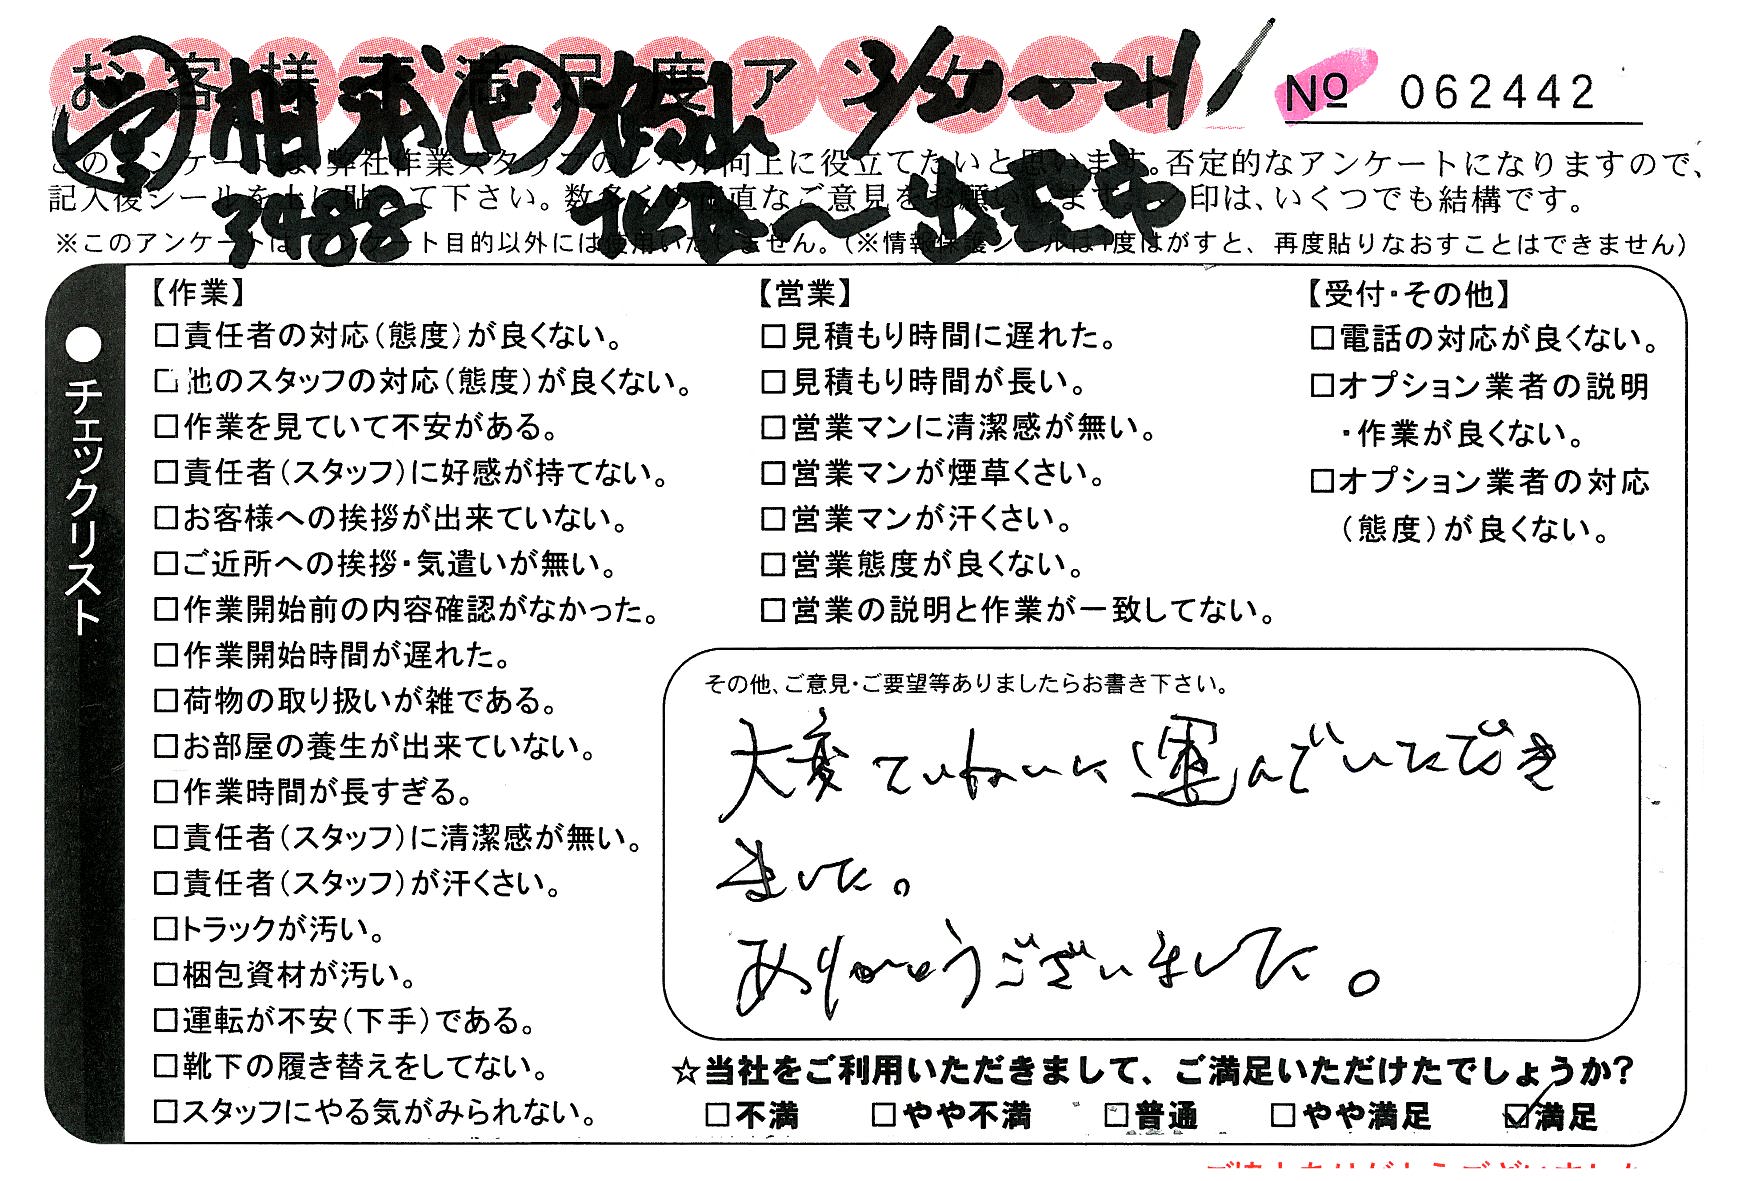 お客様不満足度アンケート
㊂相武㊥
3/20〜21
No 062442
このアンケートは、弊社作業スタッフのレベル向上に役立てたいと思います。否定的なアンケートになりますので、
記入後シールを上に貼って下さい。数多くの正直なご意見をお願いします。レ印は、いくつでも結構です。
3488
※このアンケートは、アンケート目的以外には使用いたしません。(※情報保護シールは1度はがすと、再度貼りなおすことはできません)
●チェックリスト
【作業】
□責任者の対応(態度)が良くない。
□他のスタッフの対応(態度)が良くない。
□作業を見ていて不安がある。
□責任者(スタッフ)に好感が持てない。
□お客様への挨拶が出来ていない。
□ご近所への挨拶・気遣いが無い。
□作業開始前の内容確認がなかった。
□作業開始時間が遅れた。
□荷物の取り扱いが雑である。
□お部屋の養生が出来ていない。
□作業時間が長すぎる。
□責任者(スタッフ)に清潔感が無い。
□責任者(スタッフ)が汗くさい。
□トラックが汚い。
□梱包資材が汚い。
□運転が不安(下手)である。
□靴下の履き替えをしてない。
□スタッフにやる気がみられない。
【営業】
□見積もり時間に遅れた。
□見積もり時間が長い。
□営業マンに清潔感が無い。
□営業マンが煙草くさい。
□営業マンが汗くさい。
□営業態度が良くない。
□営業の説明と作業が一致してない。
【受付・その他】
□電話の対応が良くない。
□オプション業者の説明
・作業が良くない。
□オプション業者の対応
(態度)が良くない。
その他、ご意見・ご要望等ありましたらお書き下さい。
大変ていねいに運んでいただき
ました。
ありがとうございました。
☆当社をご利用いただきまして、ご満足いただけたでしょうか?
□不満 □やや不満 □普通 □やや満足 ☑満足
ご協力ありがとうございました